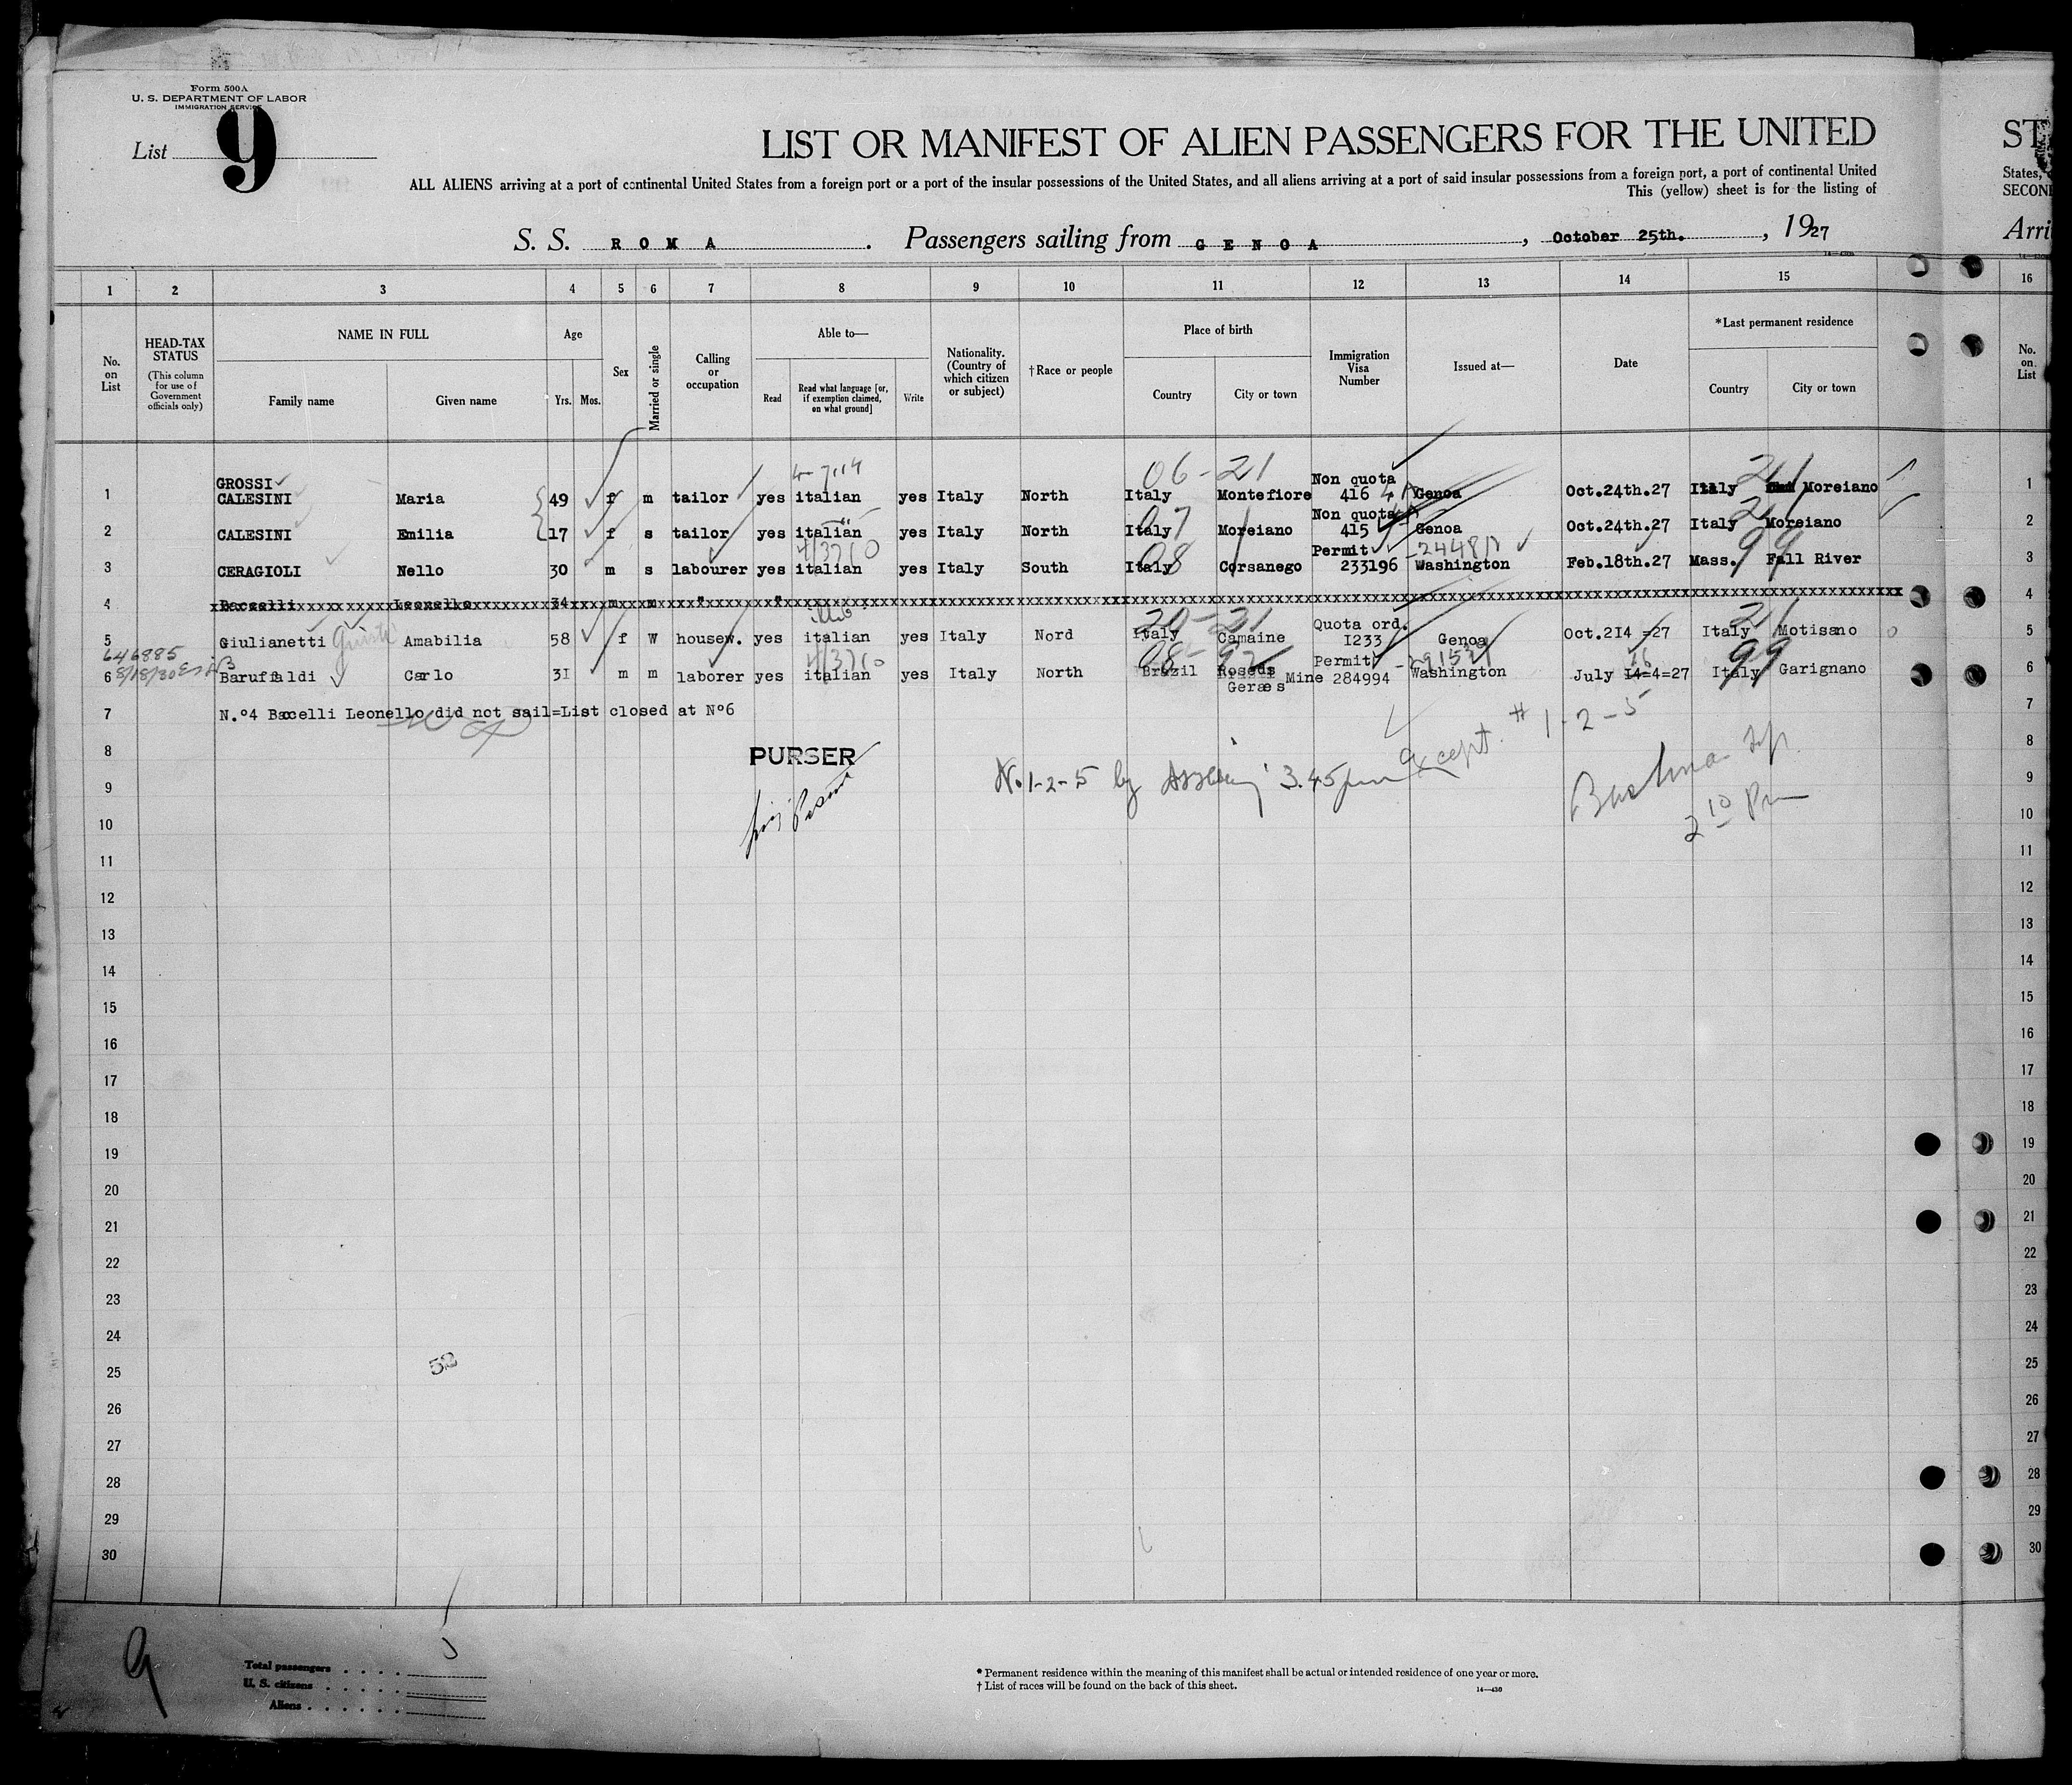 Form 500A
U. S. DEPARTMENT OF LABOR
IMMIGRATION SERVICE
List 9
LIST OR MANIFEST OF ALIEN PASSENGERS FOR THE UNITED
ST
ALL ALIENS arriving at a port of continental United States from a foreign port or a port of the insular possessions of the United States, and all aliens arriving at a port of said insular possessions from a foreign port, a port of continental United
States,
This (yellow) sheet is for the listing of
SECON
S. S. ROMA. Passengers sailing from GENOA, October 25th., 1927
Arri
1 2 3 4 5 6 7 8 9 10 11 12 13 14 15 16
No. on List
HEAD-TAX STATUS (This column for use of Government officials only)
NAME IN FULL
Family name
Given name
Age
Yrs. Mos.
Sex
Married or single
Calling or occupation
Able to—
Read
Read what language [or, if exemption claimed, on what ground]
Write
Nationality. (Country of which citizen or subject)
†Race or people
Place of birth
Country
City or town
Immigration Visa Number
Issued at—
Date
*Last permanent residence
Country
City or town
No. on List
4-7114 06-21 21
1 GROSSI CALESINI Maria 49 f m tailor yes italian yes Italy North Italy Montefiore Non quota 416 Genoa Oct.24th.27 Italy Moreiano 1
07 21
2 CALESINI Emilia 17 f s tailor yes italian yes Italy North Italy Moreiano Non quota 415 Genoa Oct.24th.27 Italy Moreiano 2
4/3710 08 -24481 99
3 CERAGIOLI Nello 30 m s labourer yes italian yes Italy South Italy Corsanego Permit 233196 Washington Feb.18th.27 Mass. Fall River 3
4 Baccelli Leonello 34 m m " " 4
20-21 21
5 Giulianetti Amabilia 58 f W housew. yes italian yes Italy Nord Italy Camaine Quota ord. 1233 Genoa Oct.214 =27 Italy Motisano 5
646885
8/18/30
4/3710 08-97 -29153 16 99
6 Baruffaldi Carlo 31 m m laborer yes italian yes Italy North Brazil Roseds Geraes Mine Permit 284994 Washington July 14=4=27 Italy Garignano 6
7 N.º4 Baccelli Leonello did not sail=List closed at Nº6 7
except # 1-2-5
8 PURSER 8
No 1-2-5 by 3.45 pm
2 10 Pm
9 9
10 10
11 11
12 12
13 13
14 14
15 15
16 16
17 17
18 18
19 19
20 20
21 21
22 22
23 23
24 24
52
25 25
26 26
27 27
28 28
29 29
30 30
9
5
Total passengers
U. S. citizens
Aliens
* Permanent residence within the meaning of this manifest shall be actual or intended residence of one year or more.
† List of races will be found on the back of this sheet.
14—430